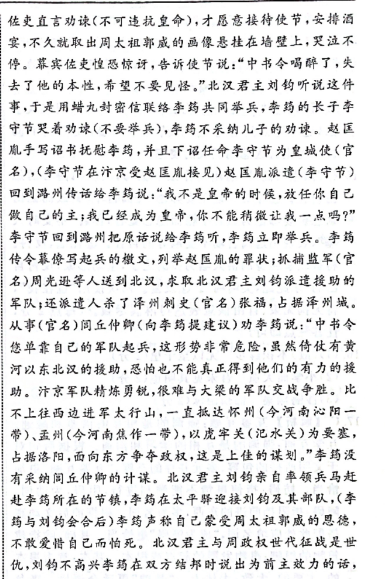 佐吏直言劝谏(不可违抗皇命),才愿意接待使节,安排酒
宴,不久就取出周太祖郭威的画像悬挂在墙壁上,哭泣不
停。幕宾佐吏惶恐惊讶,告诉使节说:“中书令喝醉了,失
去了他的本性,希望不要见怪。”北汉君主刘钧听说这件
事,于是用蜡丸封密信联络李筠共同举兵,李筠的长子李
守节哭着劝谏(不要举兵),李筠不采纳儿子的劝谏。赵匡
胤手写诏书抚慰李筠,并且下诏任命李守节为皇城使(官
名),(李守节在汴京受赵匡胤接见)赵匡胤派遣(李守节)
回到潞州传话给李筠说:“我不是皇帝的时候,放任你自己
做自己的主;我已经成为皇帝,你不能稍微让我一点吗?”
李守节回到潞州把原话说给李筠听,李筠立即举兵。李筠
传令幕僚写起兵的檄文,列举赵匡胤的罪状;抓捕监军(官
名)周光逊等人送到北汉,求取北汉君主刘钧派遣援助的
军队;还派遣人杀了泽州刺史(官名)张福,占据泽州城。
从事(官名)闾丘仲卿(向李筠提建议)劝李筠说:“中书令
您单靠自己的军队起兵,这形势非常危险,虽然倚仗有黄
河以东北汉的援助,恐怕也不能真正得到他们的有力的援
助。汴京军队精炼勇锐,很难与大梁的军队交战争胜。比
不上往西边进军太行山,一直抵达怀州(今河南沁阳一
带)、孟州(今河南焦作一带),以虎牢关(汜水关)为要塞,
占据洛阳,面向东方争夺政权,这是上佳的谋划。”李筠没
有采纳闾丘仲卿的计谋。北汉君主刘钧亲自率领兵马赶
赴李筠所在的节镇,李筠在太平驿迎接刘钧及其部队,(李
筠与刘钧会合后)李筠声称自己蒙受周太祖郭威的恩德,
不敢爱惜自己而怕死。北汉君主与周政权世代征战是世
仇,刘钧不高兴李筠在双方结邦时说出为前主效力的话,